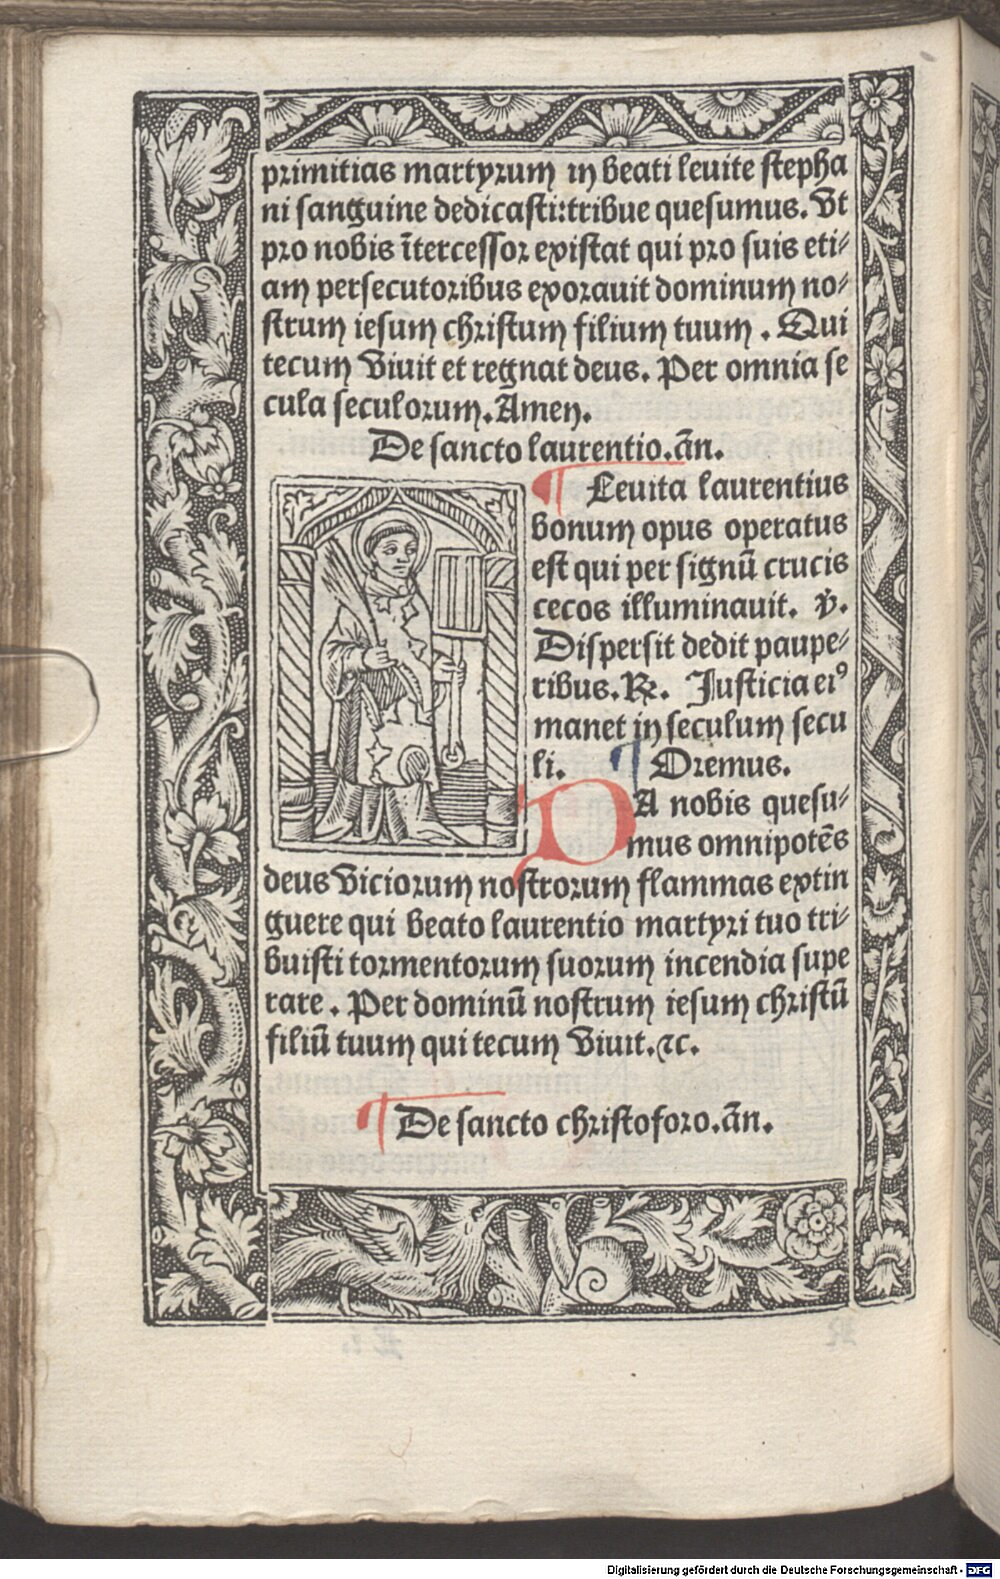 primitias martyrum in beati leuite stepha
ni sanguine dedicasti:tribue quesumus. Vt
pro nobis ītercessor existat qui pro suis eti⸗
am persecutoribus exorauit dominum no⸗
strum iesum christum filium tuum . Qui
tecum viuit et regnat deus. Per omnia se
cula seculorum. Amen.
De sancto laurentio. añ.
¶ Leuita laurentius
bonum opus operatus
est qui per signū crucis
cecos illuminauit. ℣.
Dispersit dedit paupe⸗
ribus. ℞. Justicia eiꝰ
manet in seculum secu
li. ¶ Oremus.
DA nobis quesu⸗
mus omnipotēs
deus viciorum nostrorum flammas extin
guere qui beato laurentio martyri tuo tri⸗
buisti tormentorum suorum incendia supe
rare . Per dominū nostrum iesum christū
filiū tuum qui tecum viuit. ⁊c.
¶ De sancto christoforo. añ.
Digitalisierung gefördert durch die Deutsche Forschungsgemeinschaft - DFG